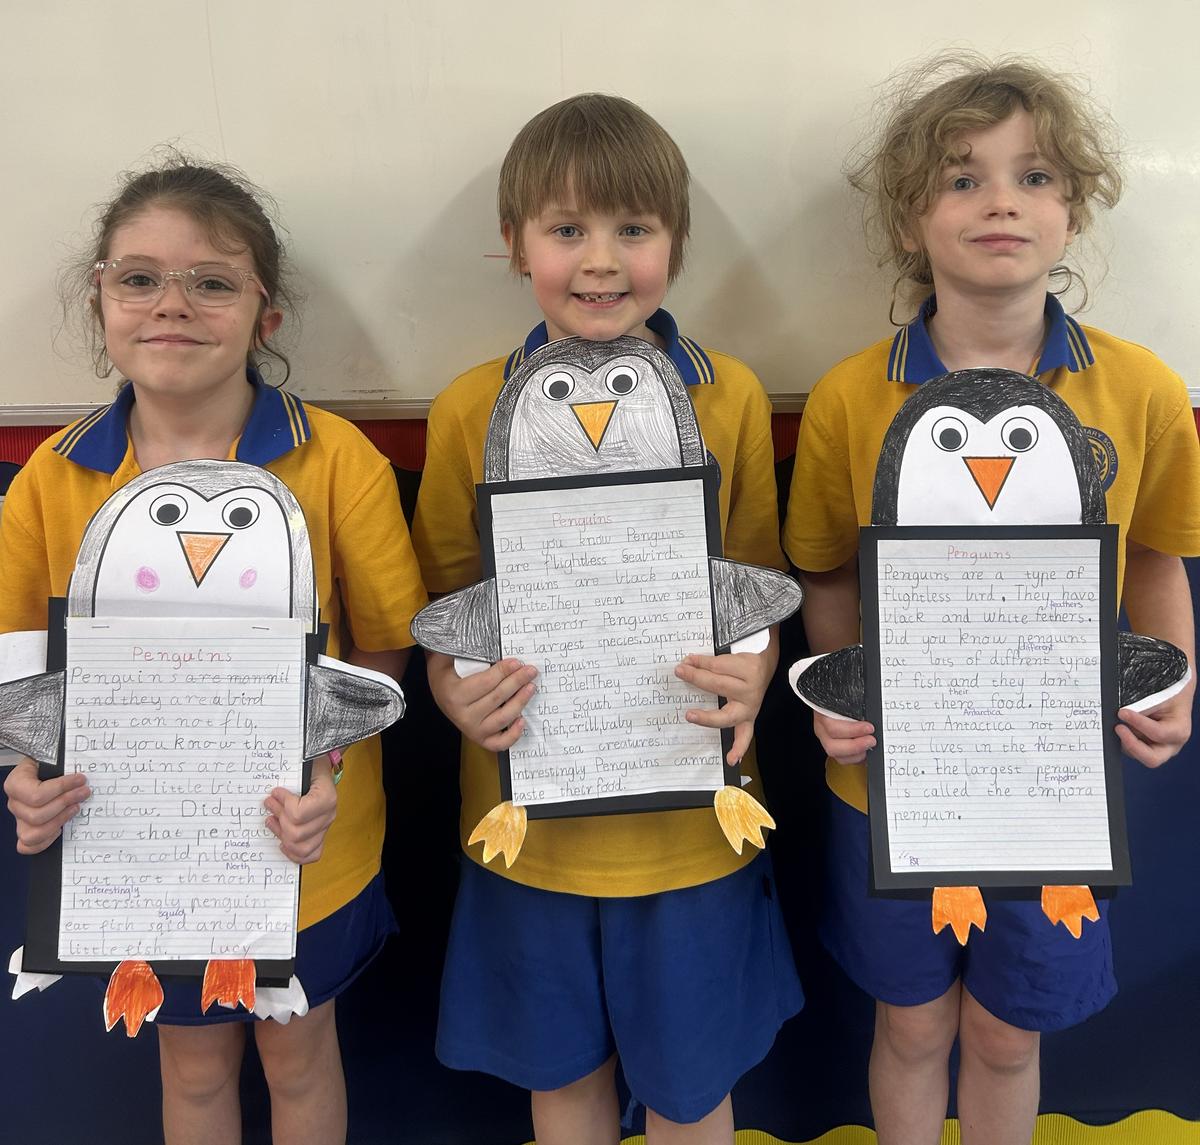 Penguins
Penguins are mommil
and they are a bird
that can not fly.
Did you know that
black
penguins are back
white
and a little bit we
yellow. Did you
know that penguin
places
live in cold pleaces
North
but not the noth Pole
Interestingly
Interssingly penguins
squid
eat fish sqid and other
little fish. Lucy
Penguins
Did you know Penguins
are flightless Seabirds.
Penguins are black and
White.They even have special
oil.Emperor Penguins are
the largest species.Suprisingly
Penguins live in the
h Pole!They only
the South Pole.Penguins
krill
t fish,crill,baby squid
small sea creatures.
Intrestingly Penguins cannot
taste their food.
Penguins
Penguins are a type of
flightless bird. They have
feathers
black and white fethers.
Did you know penguins
different
eat lots of diffrent types
of fish and they don't
their
taste there food. Penguins
Antarctica
live in Antactica not evan
one lives in the North
Pole. The largest penguin
Emperor
is called the empora
penguin.
MARY SCHOOL